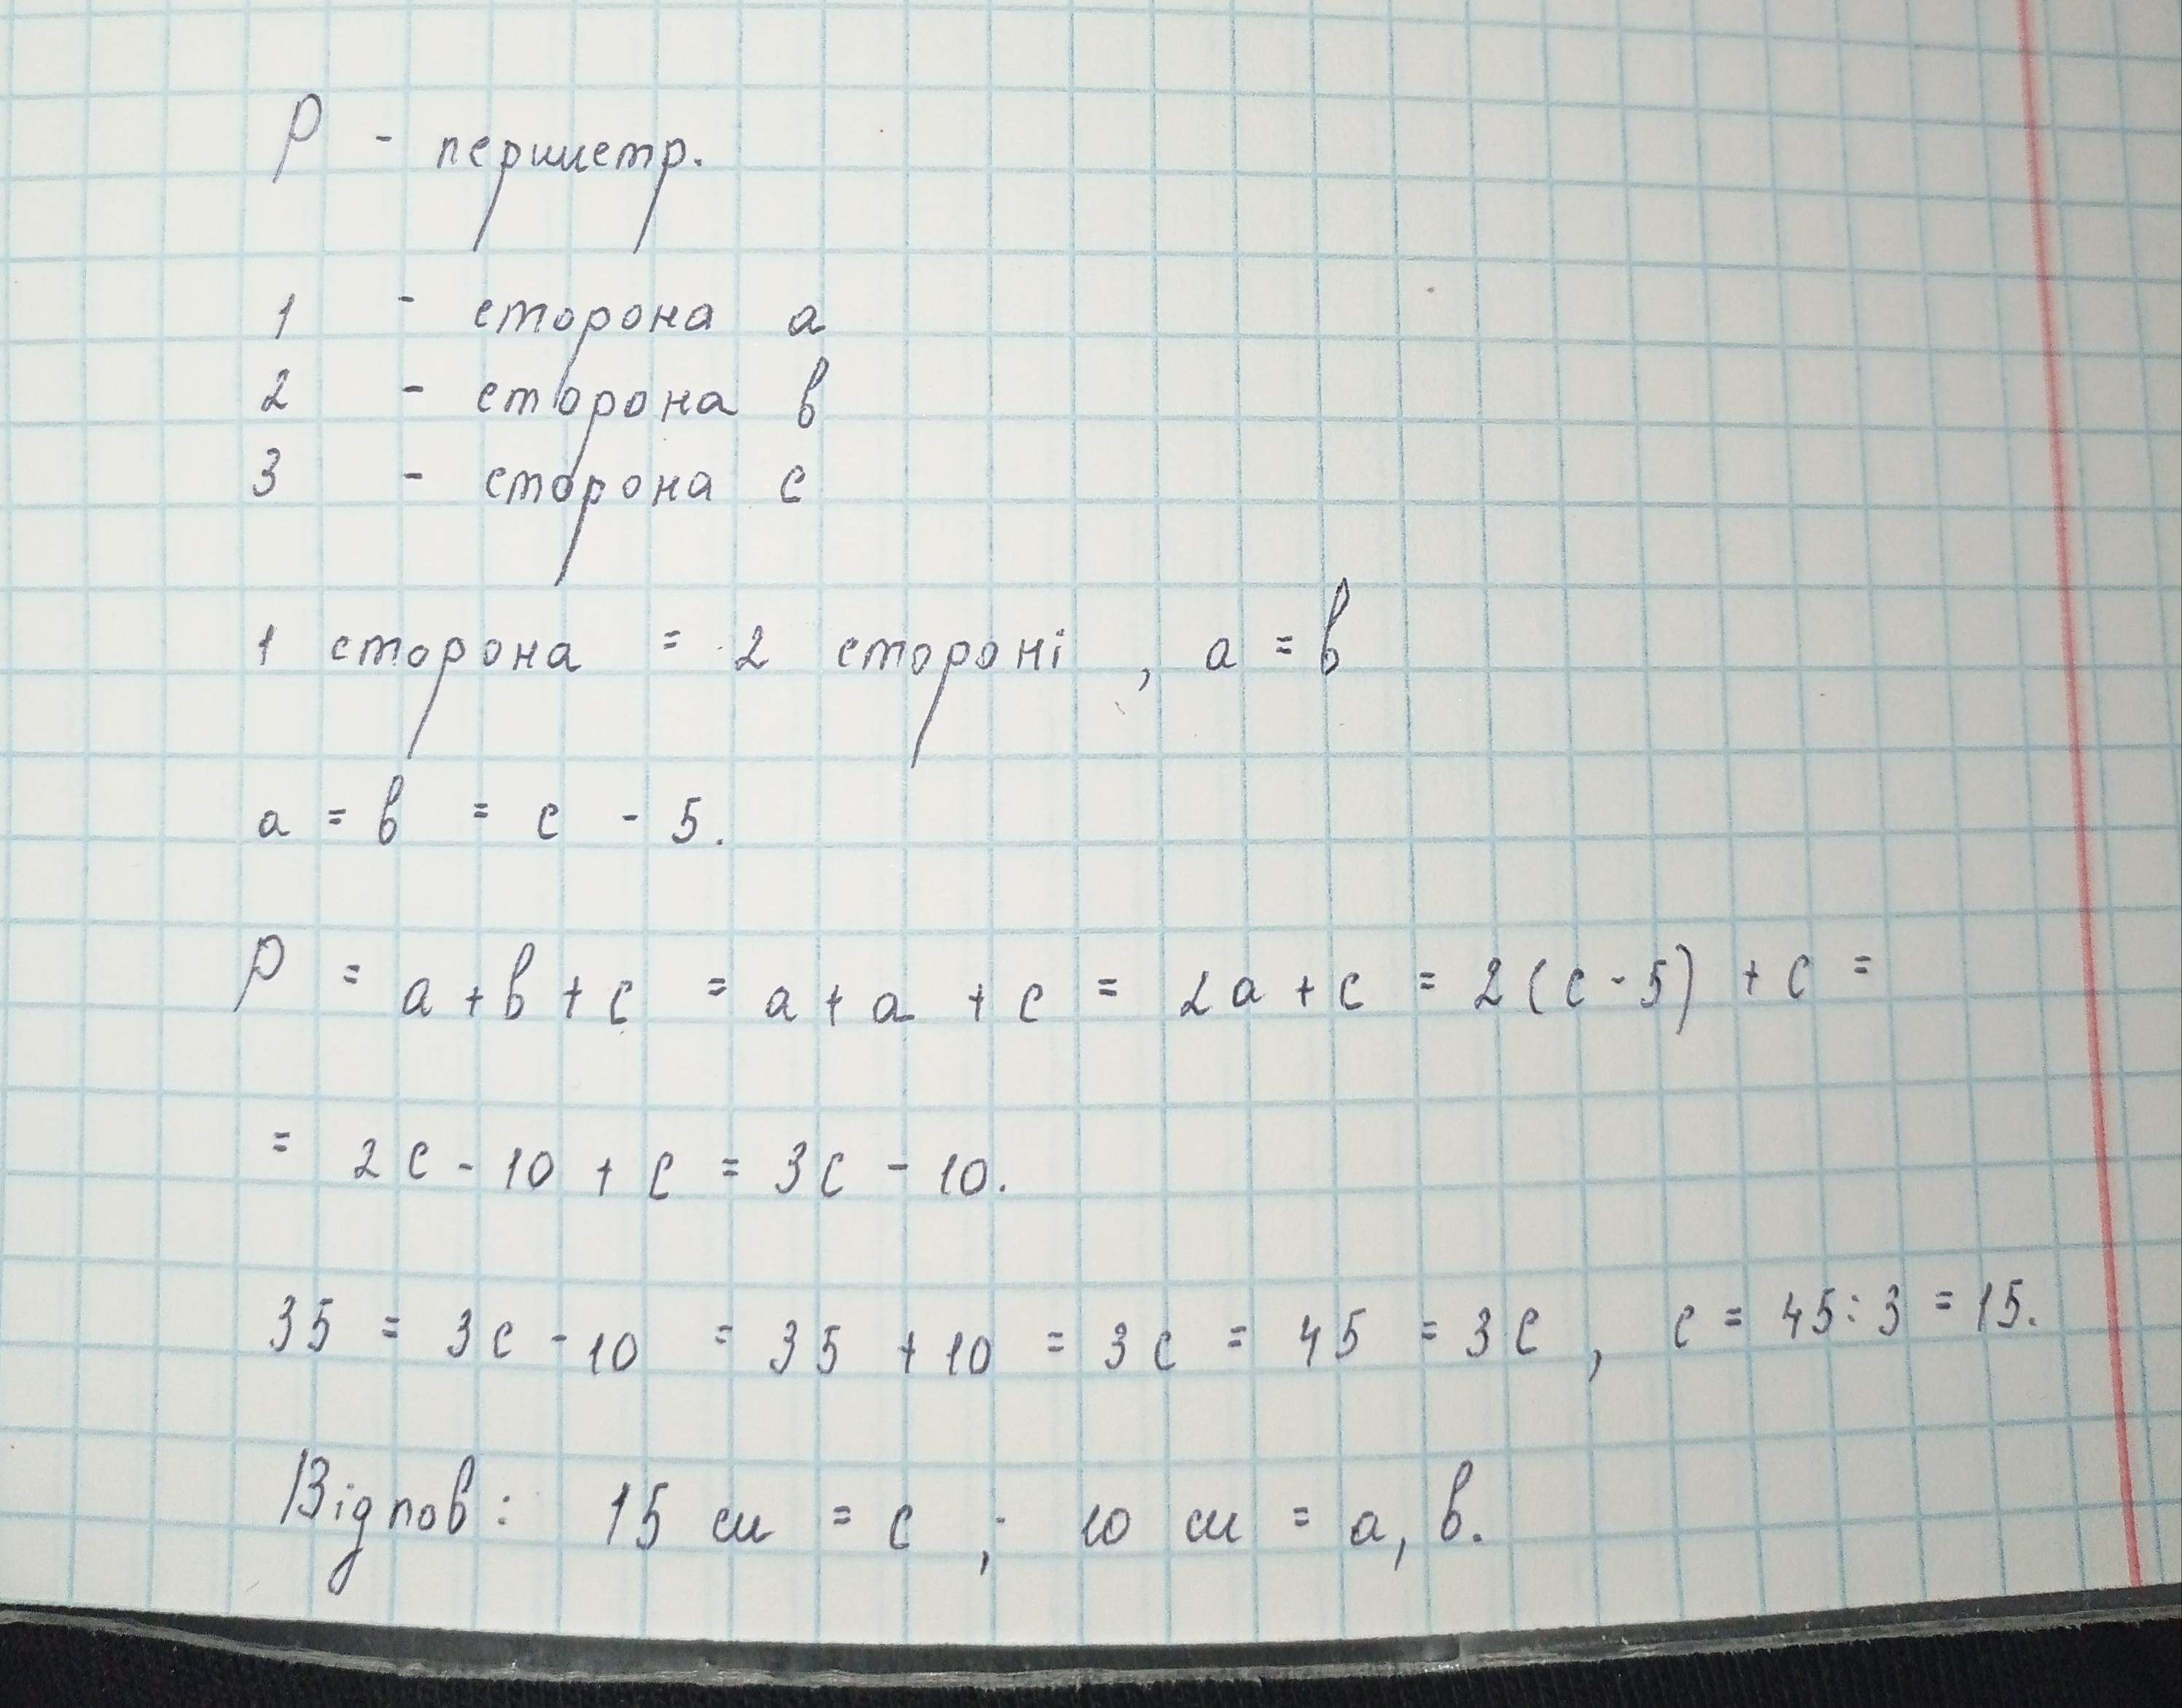 P - периметр.
1 - сторона a
2 - сторона в
3 - сторона c
1 сторона = 2 стороні , a = в
a = в = c - 5.
P = a + в + c = a + a + c = 2a + c = 2(c - 5) + c =
= 2c - 10 + c = 3c - 10.
35 = 3c - 10 = 35 + 10 = 3c = 45 = 3c , c = 45 : 3 = 15.
Відпов: 15 см = c ; 10 см = a, в.